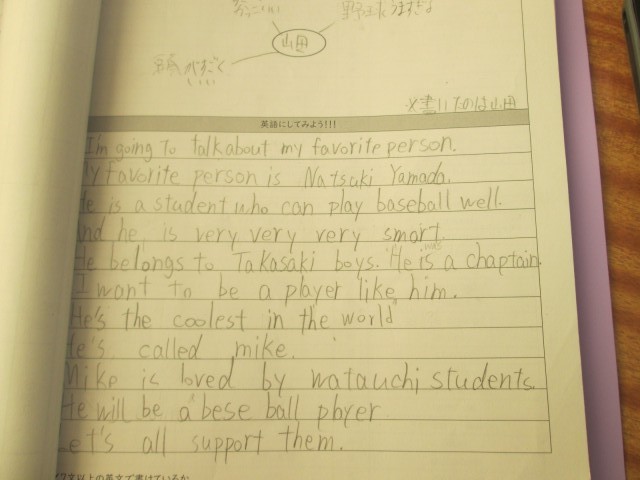 野球うますぎる
山田
※書いたのは山田
英語にしてみよう!!!
I'm going to talk about my favorite person.
My favorite person is Natsuki Yamada.
He is a student who can play baseball well.
And he is very very very smart.
He belongs to Takasaki boys. He is was a chaptain.
I want to be a player like him.
He's the coolest in the world
He's called mike.
Mike is loved by watauchi students.
He will be a bese ball phyer
Let's all support them.
文以上の英文で書けているか